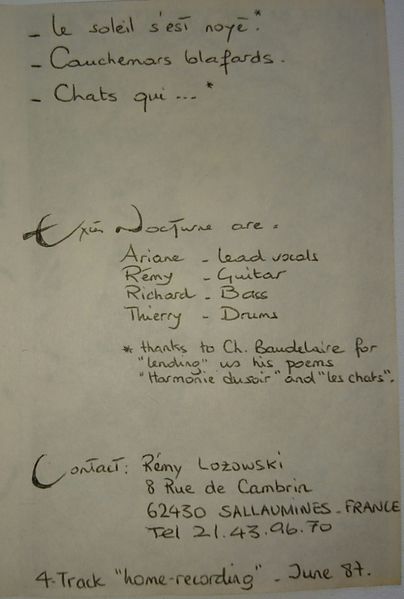 - Le soleil s'est noyé.*
- Cauchemars blafards.
- Chats qui ... *
Nocturne are :
Ariane - Lead vocals
Rémy - Guitar
Richard - Bass
Thierry - Drums
* thanks to Ch. Baudelaire for
"lending" us his poems
"Harmonie du soir" and "les chats".
Contact: Rémy Lozowski
8 Rue de Cambrin
62430 SALLAUMINES - FRANCE
Tel 21.43.96.70
4-Track "home-recording" - June 87.